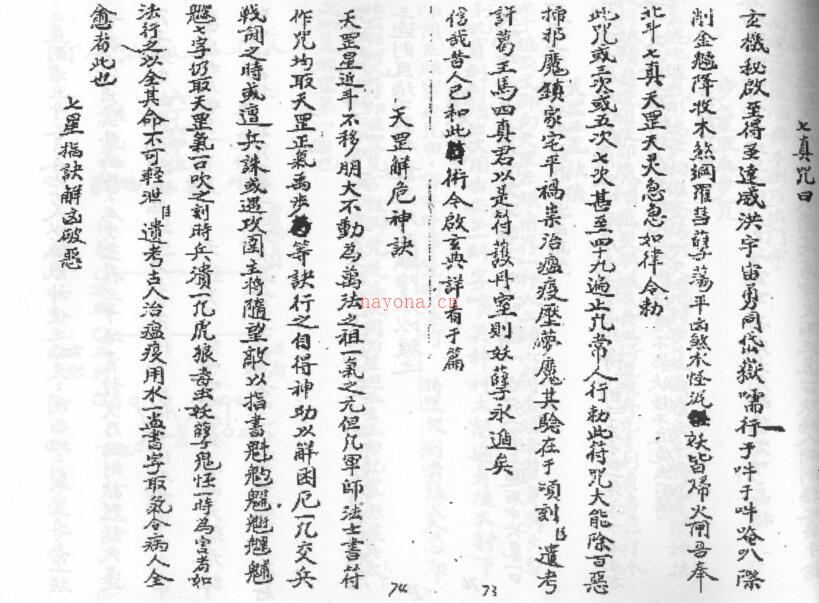 七真咒曰
玄機秘啟至得至達威洪宇宙勇同岱嶽嚅行于吽于吽唵八際
削金魑降收木煞綱羅彗孽蕩平凶煞水怪泥妖皆歸火闸吾奉
北斗七真天罡天灵急急如律令勅
此咒或三次或五次七次甚至四十九遍止凡常人行勅此符咒大能除百惡
掃邪魔鎮家宅平禍祟治瘟疫壓夢魔其驗在于頃刻遺考
許葛王馬四真君以是符護丹室則妖孽永遁矣
信哉昔人已和此術令啟玄典詳看于篇
73
天罡解危神訣
天罡星近斗不移朋大不動為萬法之祖一氣之元但凡軍師法士書符
作咒均取天罡正氣禹步等訣行之自得神功以解困厄一凡交兵
戰鬪之時或遭兵誅或遇攻圍主將隨望敵以指書魁
七字仍取天罡氣一口吹之刻時兵潰一凡虎狼毒虫妖孽鬼怪一時為害者如
法行之以全其命不可輕泄遺考古人治瘟疫用水一盅書字取氣令病人全
愈者此也
七星掐訣解凶破惡
74
nayona.cn